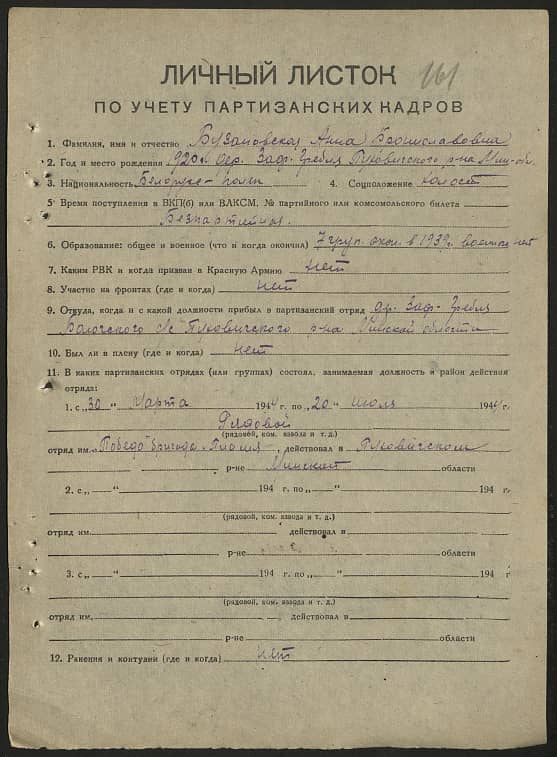 161
ЛИЧНЫЙ ЛИСТОК
ПО УЧЕТУ ПАРТИЗАНСКИХ КАДРОВ
1. Фамилия, имя и отчество Бузановская Анна Брониславовна
2. Год и место рождения 1920 г. дер. Заф-Гребля Пуховичского р-на Мин-обл.
3. Национальность Белорус- 4. Соцположение холост
5. Время поступления в ВКП(б) или ВЛКСМ, № партийного или комсомольского билета
Безпартийная.
6. Образование: общее и военное (что и когда окончил) 7 груп. окон. в 1939г. военное нет
7. Каким РВК и когда призван в Красную Армию нет
8. Участие на фронтах (где и когда) нет
9. Откуда, когда и с какой должности прибыл в партизанский отряд др. Заф-Гребля
с/с Пуховичского р-на Минской области
10. Был ли в плену (где и когда) нет
11. В каких партизанских отрядах (или группах) состоял, занимаемая должность и район действия
отряда:
1. с „30“ Марта 1944 г. по „20“ июля 1944 г.
Рядовой
(рядовой, ком. взвода и т. д.)
отряд им. Победа бригада Пламя, действовал в Пуховичском
р-не Минской области
2. с „ “ 194 г. по „ “ 194 г.
(рядовой, ком. взвода и т. д.)
отряд им. действовал в
р-не области
3. с „ “ 194 г. по „ “ 194 г
(рядовой, ком. взвода и т. д.)
отряд им. , действовал в
р-не области
12. Ранения и контузии (где и когда) нет